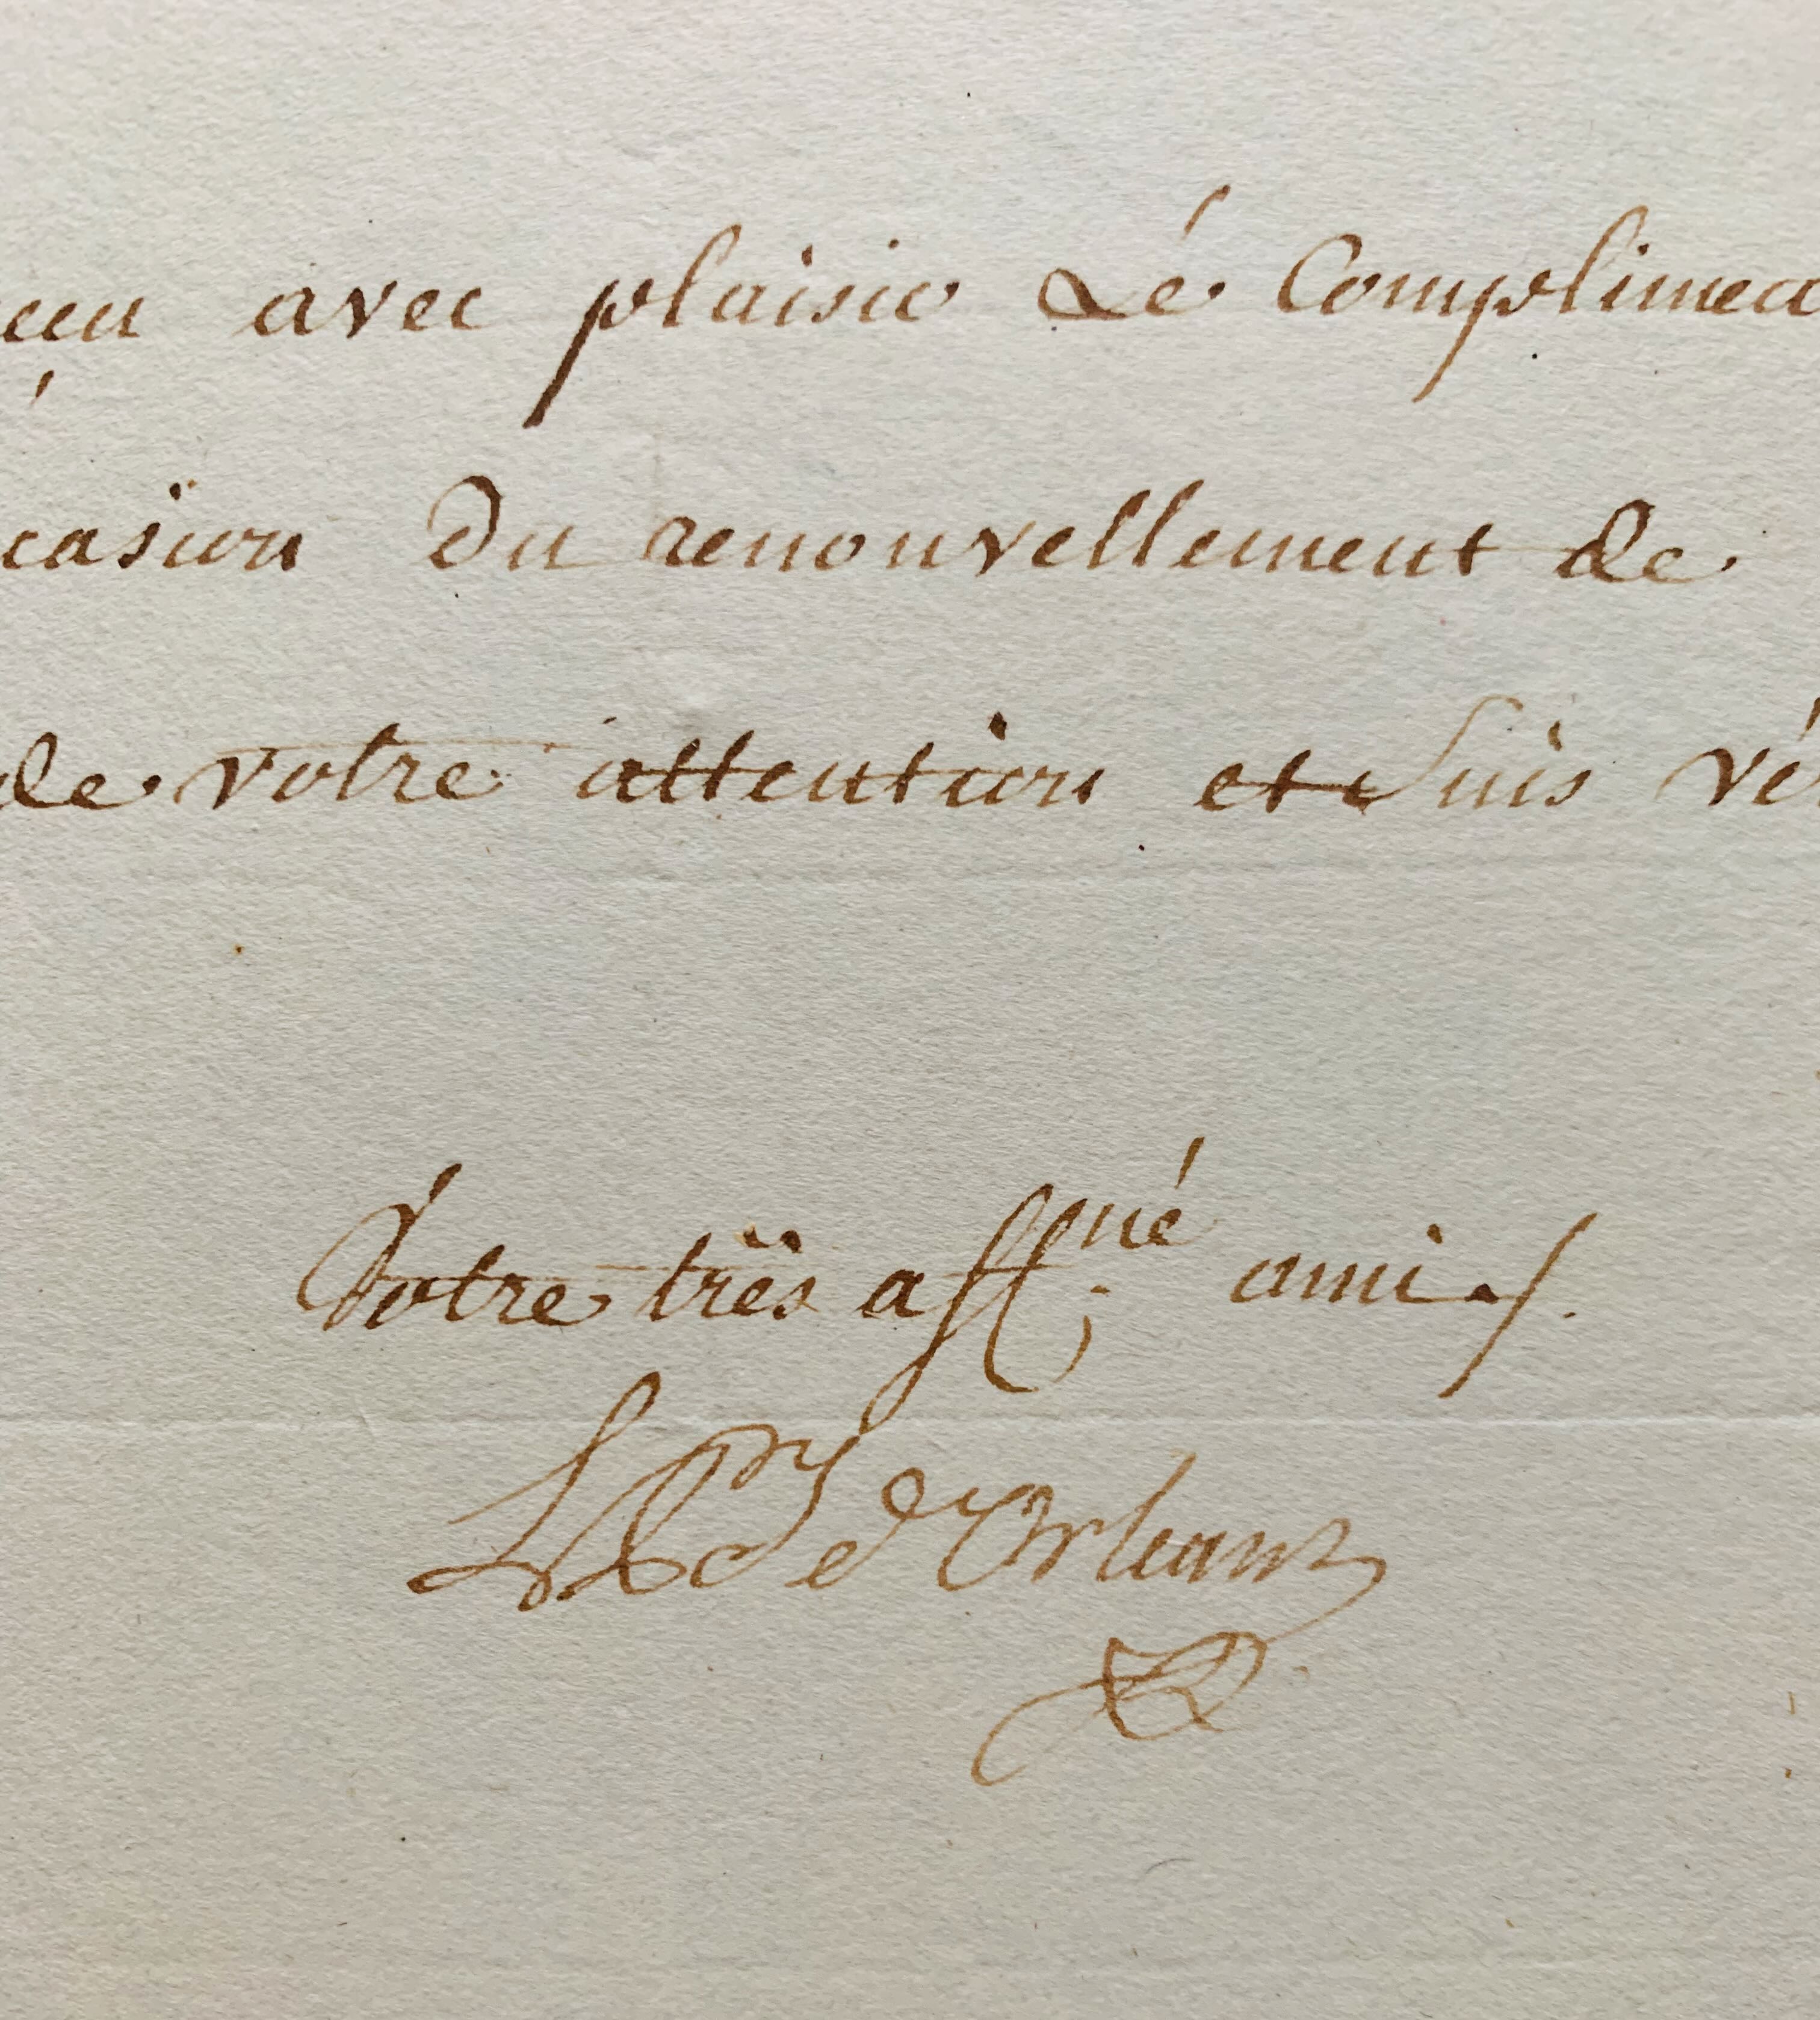 eçu avec plaisir Le Complimen
casion Du renouvellement de
de votre attention et suis vé
Votre très affné ami
d'Orleans